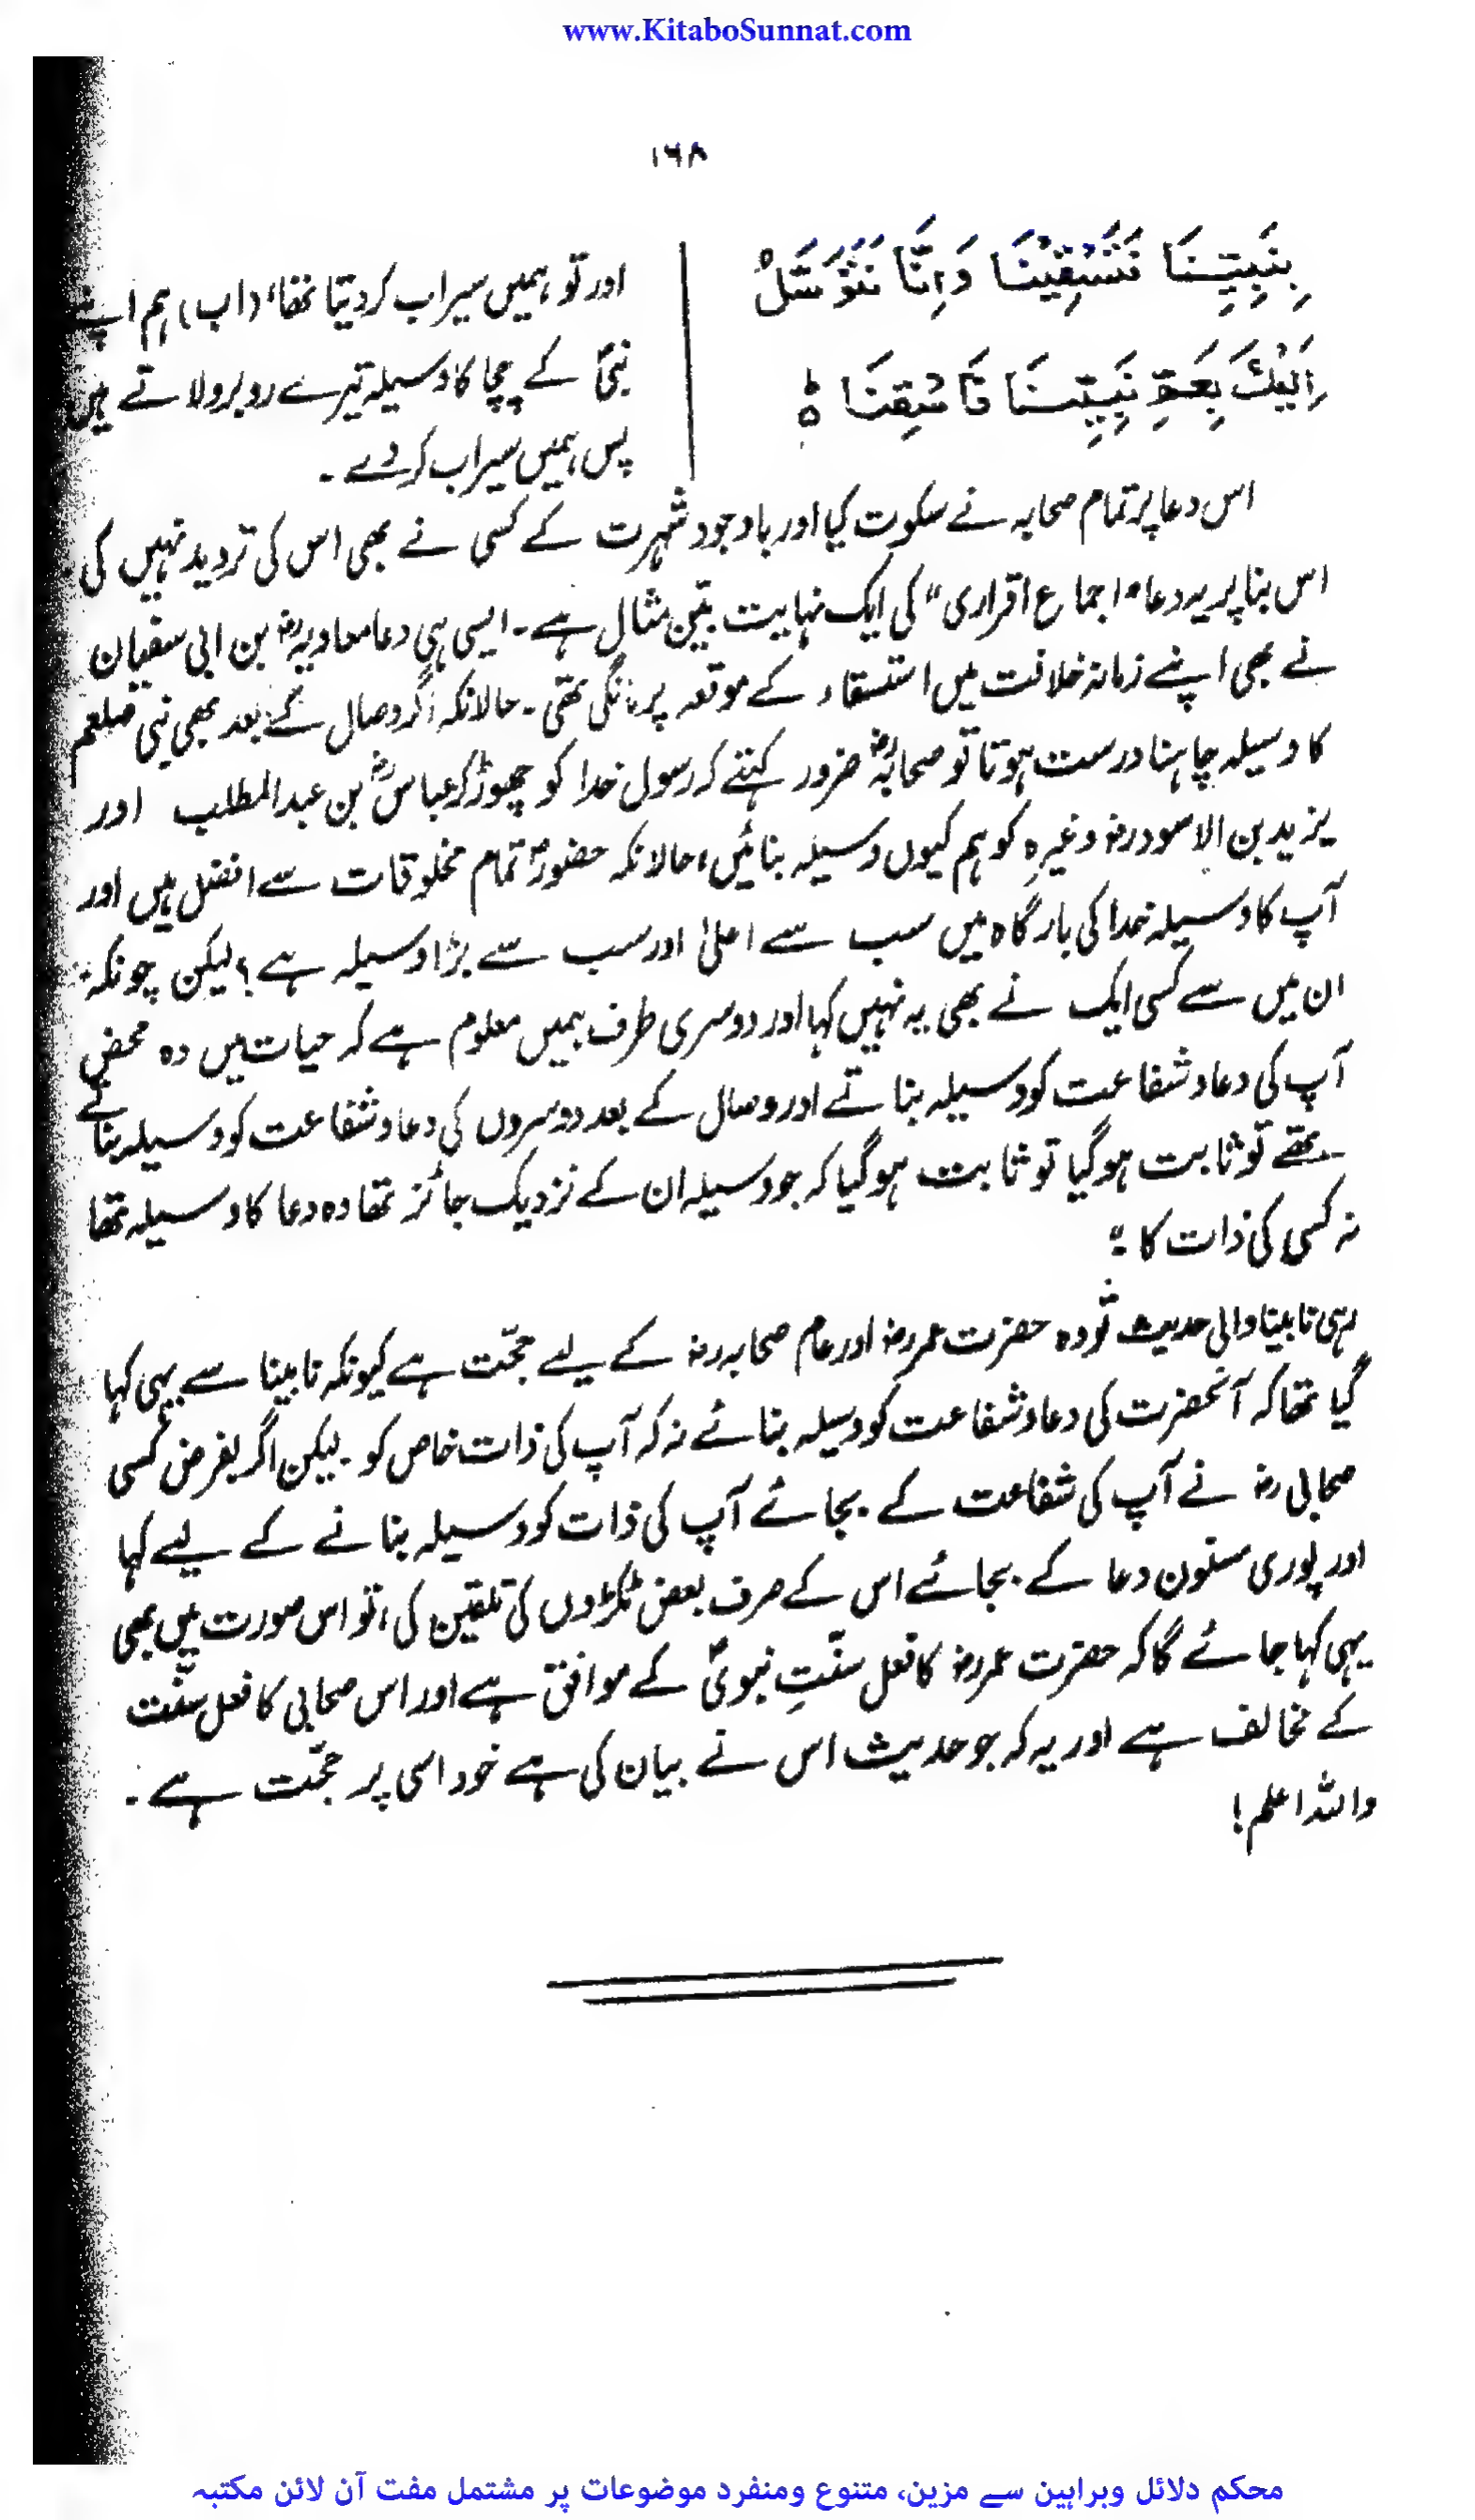 www.KitaboSunnat.com
۱۶۸
بِنَبِيِّنَا فَتَسْقِيْنَا وَاِنَّا نَتَوَسَّلُ
اِلَيْكَ بِعَمِّ نَبِيِّنَا فَاسْقِنَا ؕ
اور تو ہمیں سیراب کر دیتا تھا، (اب) ہم اپنے
نبیؐ کے چچا کا وسیلہ تیرے روبرو لاتے ہیں
پس ہمیں سیراب کر دے ۔
اس دعا پر تمام صحابہ نے سکوت کیا اور باوجود شہرت کے کسی نے بھی اس کی تردید نہیں کی
اس بنا پر یہ دعا "اجماع اقراری" کی ایک نہایت بیّن مثال ہے ۔ ایسی ہی دعا معاویہؓ بن ابی سفیان
نے بھی اپنے زمانہ خلافت میں استسقاء کے موقعہ پر مانگی تھی ۔ حالانکہ اگر وصال کے بعد بھی نبی صلعم
کا وسیلہ چاہنا درست ہوتا تو صحابہؓ ضرور کہتے کہ رسول خدا کو چھوڑ کر عباسؓ بن عبدالمطلب اور
یزید بن الاسودؓ وغیرہ کو ہم کیوں وسیلہ بنائیں، حالانکہ حضورؐ تمام مخلوقات سے افضل ہیں اور
آپ کا وسیلہ خدا کی بارگاہ میں سب سے اعلیٰ اور سب سے بڑا وسیلہ ہے؟ لیکن چونکہ
ان میں سے کسی ایک نے بھی یہ نہیں کہا اور دوسری طرف ہمیں معلوم ہے کہ حیات میں وہ محض
آپ کی دعا و شفاعت کو وسیلہ بناتے اور وصال کے بعد دوسروں کی دعا و شفاعت کو وسیلہ بناتے
تھے تو ثابت ہوگیا تو ثابت ہوگیا کہ جو وسیلہ ان کے نزدیک جائز تھا وہ دعا کا وسیلہ تھا
نہ کسی کی ذات کا ۔"
رہی نابینا والی حدیث تو وہ حضرت عمرؓ اور عام صحابہؓ کے لیے حجّت ہے کیونکہ نابینا سے یہی کہا
گیا تھا کہ آنحضرت کی دعا و شفاعت کو وسیلہ بنائے نہ کہ آپ کی ذات خاص کو ۔ لیکن اگر بفرض کسی
صحابیؓ نے آپ کی شفاعت کے بجائے آپ کی ذات کو وسیلہ بنانے کے لیے کہا
اور پوری مسنون دعا کے بجائے اس کے صرف بعض ٹکڑوں کی تلقین کی، تو اس صورت میں بھی
یہی کہا جائے گا کہ حضرت عمرؓ کا فعل سنّتِ نبویؐ کے موافق ہے اور اس صحابی کا فعل سنّت
کے مخالف ہے اور یہ کہ جو حدیث اس نے بیان کی ہے خود اسی پر حجّت ہے ۔
واللہ اعلم!
محکم دلائل وبراہین سے مزین، متنوع ومنفرد موضوعات پر مشتمل مفت آن لائن مکتبہ